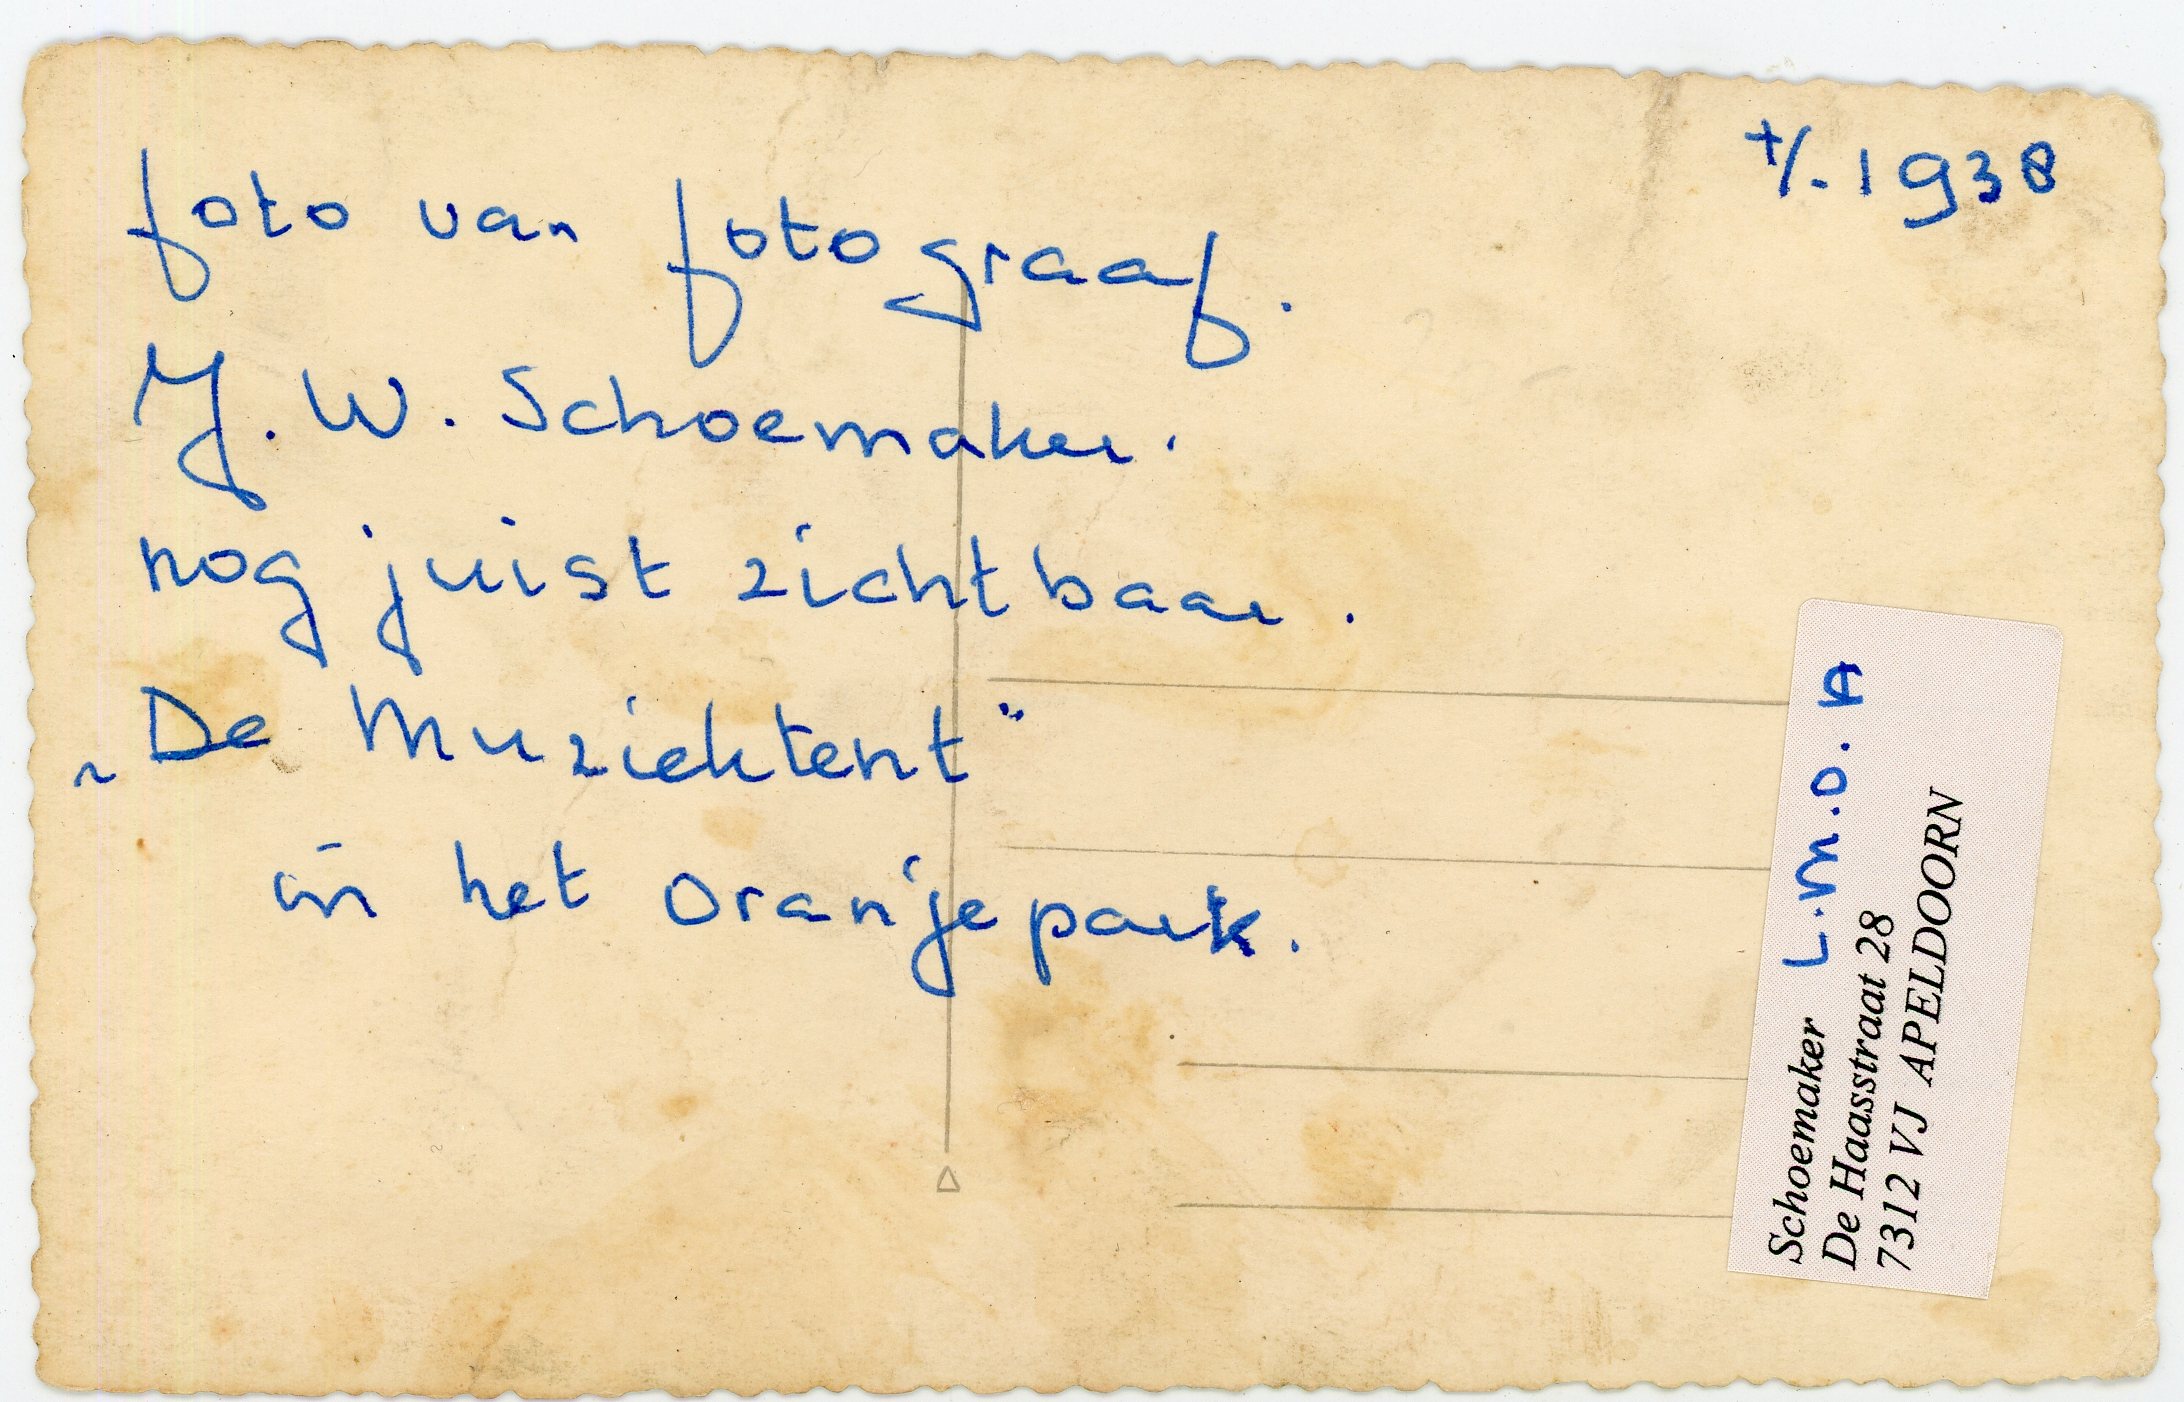 +/- 1938
foto van fotograaf.
J. W. Schoemaker.
nog juist zichtbaar.
„De Muziektent"
in het Oranjepark.
Schoemaker L.M.O.A
De Haasstraat 28
7312 VJ APELDOORN